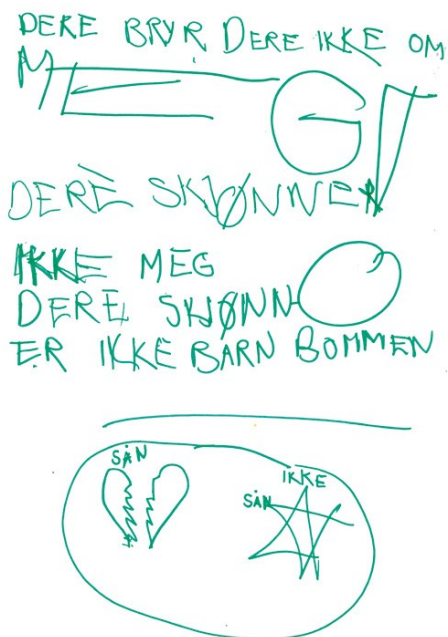 DERE BRYR DERE IKKE OM
MEG
DERE SKJØNNER
IKKE MEG
DERE SKJØNN
ER IKKE BARN BOMMEN
SÅN
IKKE
SÅN